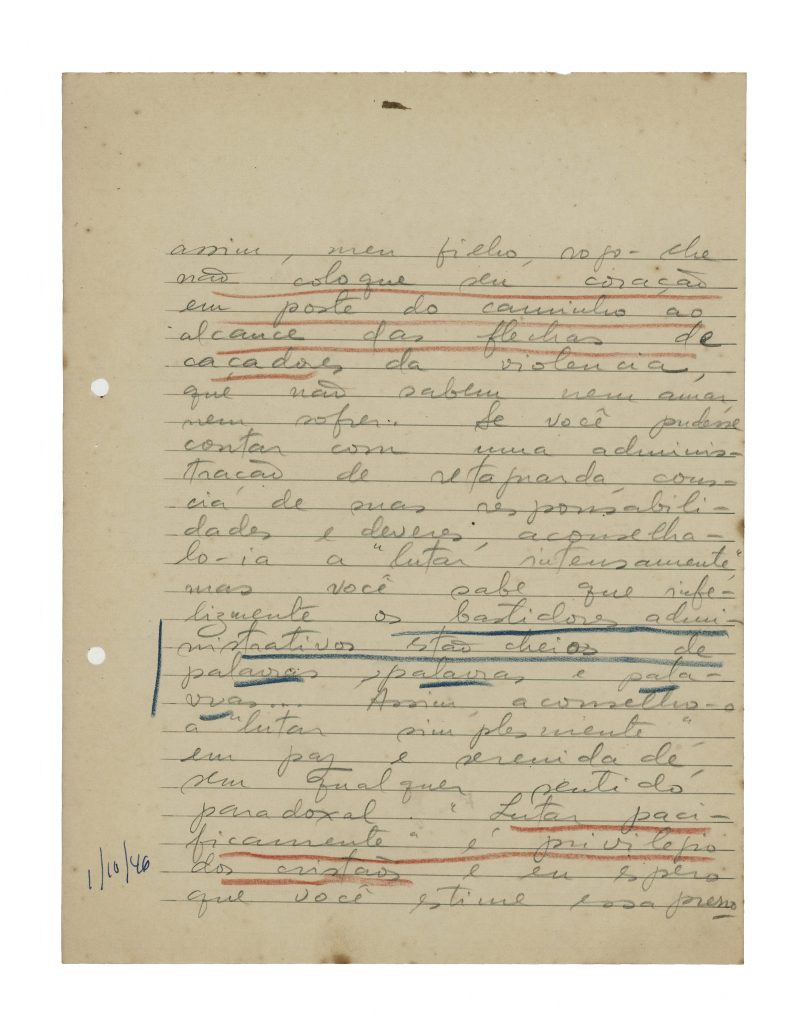 assim, meu filho, rogo-lhe
não coloque seu coração
em poste do caminho ao
alcance das flechas de
caçadores da violencia,
que não sabem nem amar,
nem sofrer. Se você pudesse
contar com uma adminis-
tração de retaguarda, cons-
cia de suas responsabili-
dades e deveres, aconselha-
lo-ia a "lutar intensamente"
mas você sabe que infe-
lizmente os bastidores admi-
nistrativos estão cheios de
palavras, palavras e pala-
vras.... Assim, aconselho-o
a "lutar simplesmente"
em paz e serenidade,
sem qualquer sentido
paradoxal. "Lutar paci-
ficamente" é privilegio
dos cristãos e eu espero
que você estime essa
1/10/46